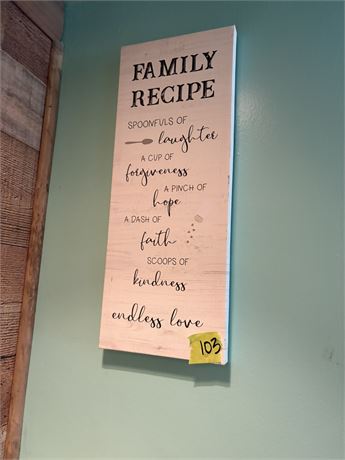 FAMILY
RECIPE
SPOONFULS OF
laughter
A CUP OF
forgiveness
A PINCH OF
hope
A DASH OF
faith
SCOOPS OF
kindness
endless love
103